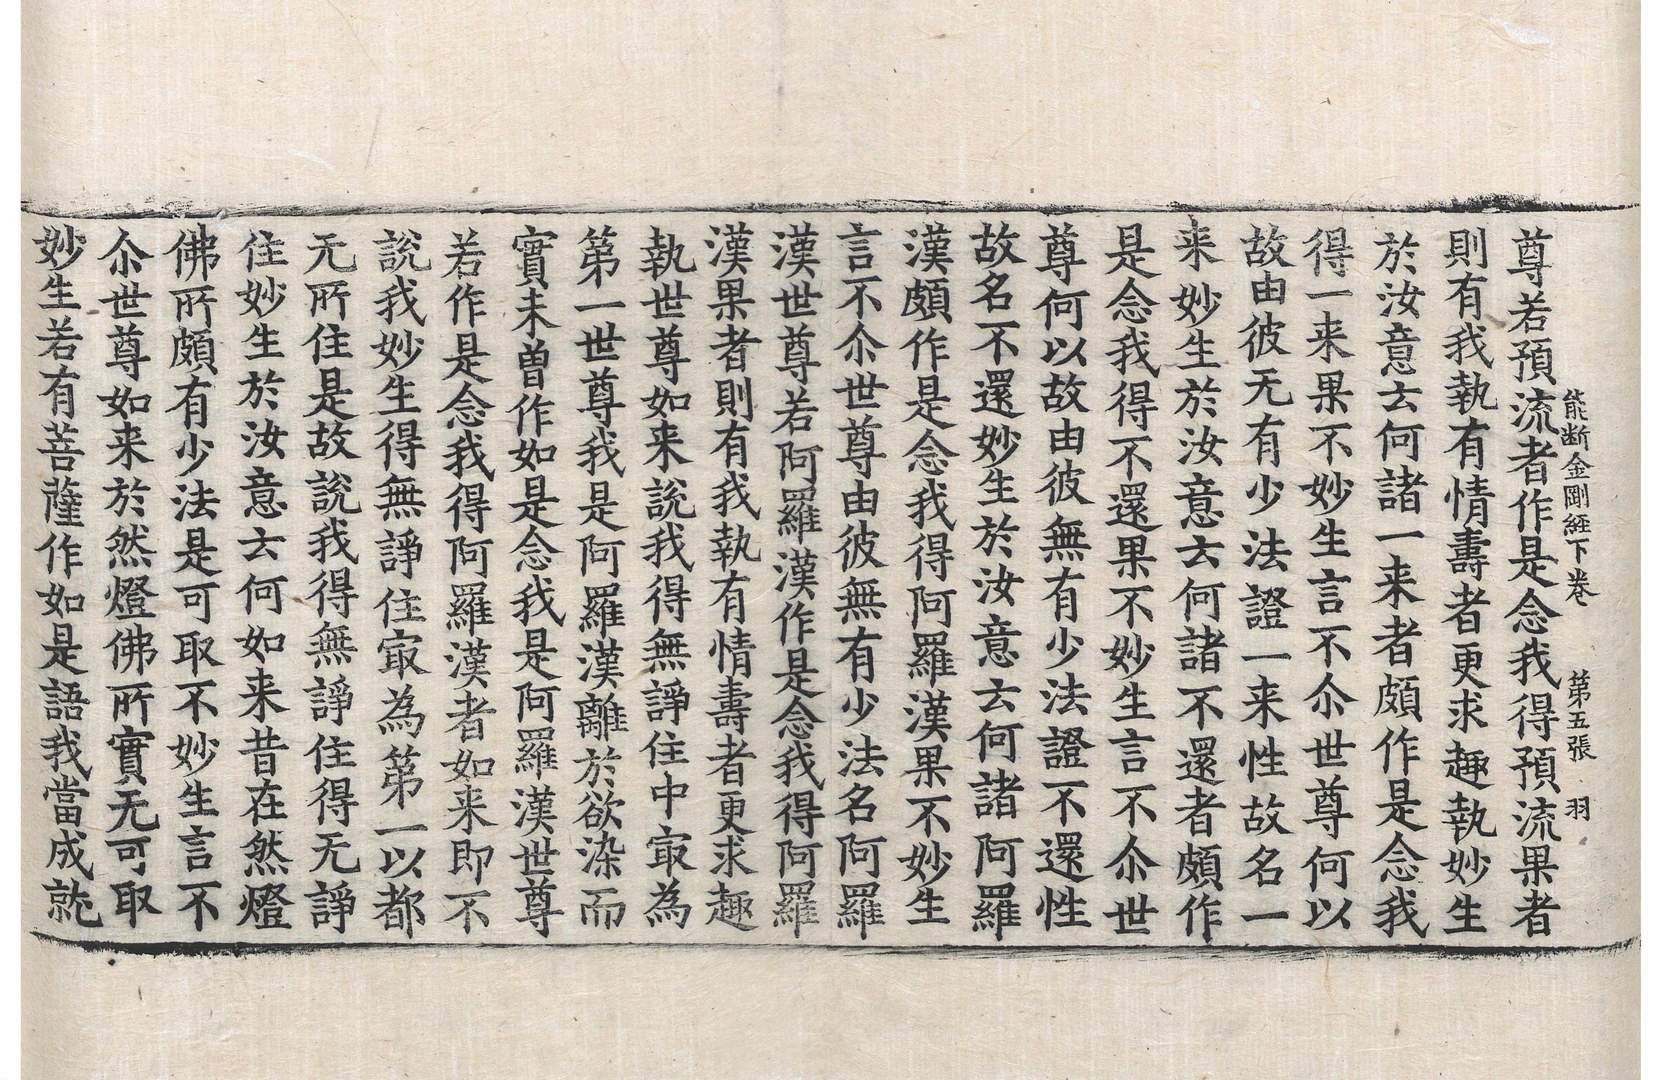 能断金剛経下巻　第五張　羽
尊若預流者作是念我得預流果者
則有我執有情壽者更求趣執妙生
於汝意云何諸一来者頗作是念我
得一来果不妙生言不尒世尊何以
故由彼无有少法證一来性故名一
来妙生於汝意云何諸不還者頗作
是念我得不還果不妙生言不尒世
尊何以故由彼無有少法證不還性
故名不還妙生於汝意云何諸阿羅
漢頗作是念我得阿羅漢果不妙生
言不尒世尊由彼無有少法名阿羅
漢世尊若阿羅漢作是念我得阿羅
漢果者則有我執有情壽者更求趣
執世尊如来說我得無諍住中冣為
第一世尊我是阿羅漢離於欲染而
實未曽作如是念我是阿羅漢世尊
若作是念我得阿羅漢者如来即不
說我妙生得無諍住冣為第一以都
无所住是故說我得無諍住得无諍
住妙生於汝意云何如来昔在然燈
佛所頗有少法是可取不妙生言不
尒世尊如来於然燈佛所實无可取
妙生若有菩薩作如是語我當成就